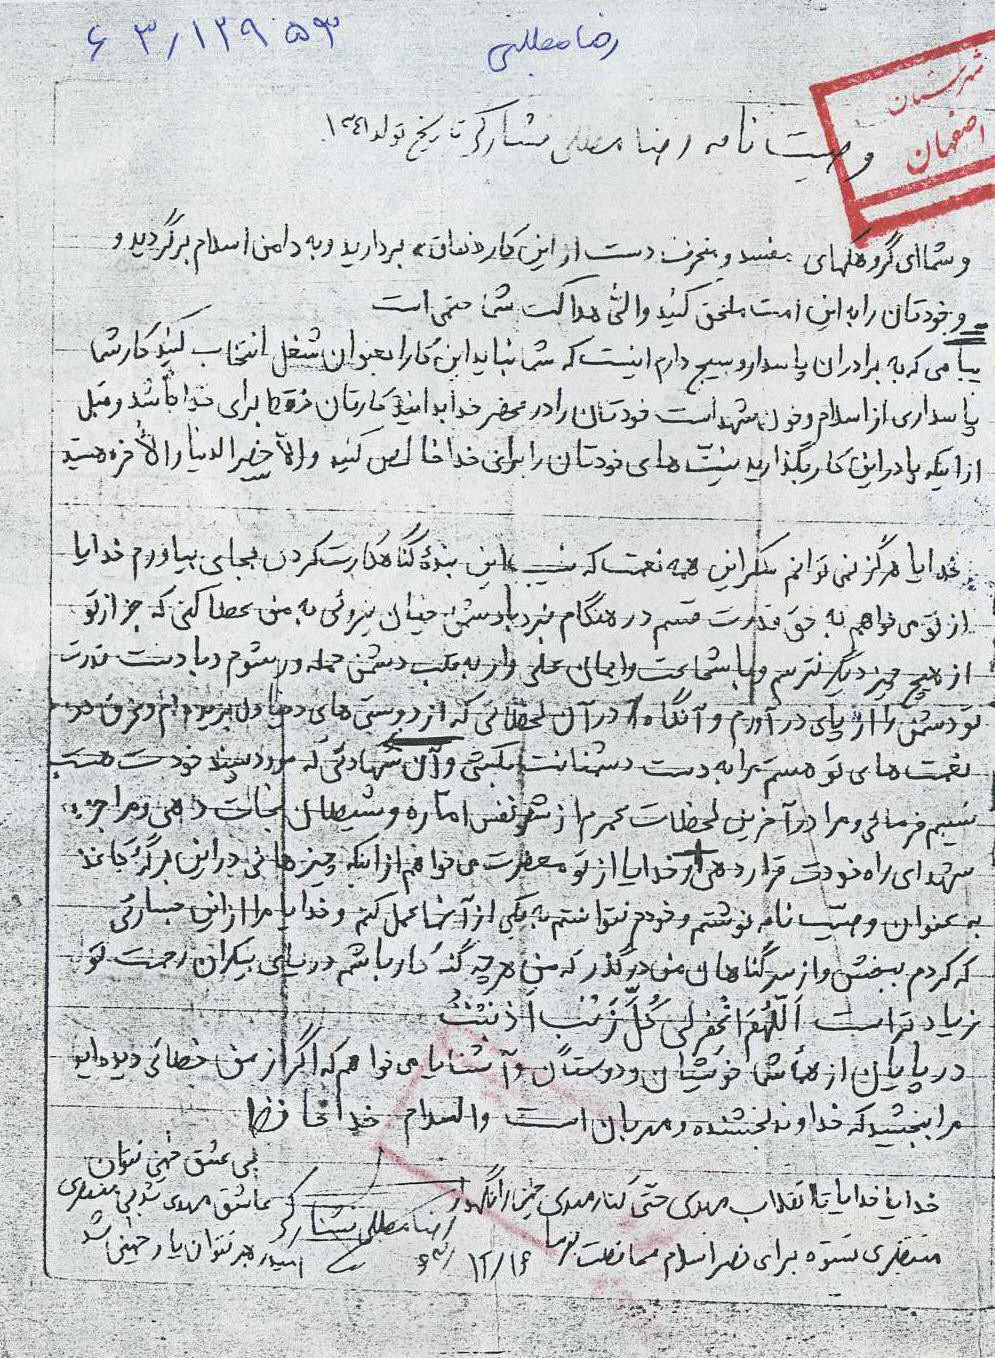 ۶۳/۱۲۹۵۳
رضا مطلبی
شهرستان
اصفهان
وصیت نامه رضا مطلبی فشارکی تاریخ تولد ۱۳۴۱
و شما ای گروهکهای مفسد و منحرف دست از این کار «نفاق» بردارید و به دامن اسلام برگردید و
و خودتان را به این امت ملحق کنید والی هلاکت شما حتمی است
پیامی که به برادران پاسدار و بسیج دارم اینست که شما نباید این کار را بعنوان شغل انتخاب کنید کار شما
پاسداری از اسلام و خون شهداست خودتان را در محضر خدا بدانید کارتان فقط برای خدا باشد و قبل
از اینکه پا در این کار بگذارید نیت های خودتان را برای خدا خالص کنید والا خسر الدنیا و الأخره هستید
خدایا هرگز نمی توانم شکر این همه نعمت که نصیب این بندۀ گناهکارت کردی بجای بیاورم خدایا
از تو می خواهم به حق قدرت قسم در هنگام نبرد با دشمن چنان نیروئی به من عطا کنی که جز از تو
از هیچ چیز دیگر نترسم و با شجاعت و ایمان علی وار به قلب دشمن حمله ور بشوم و با دست قدرت
تو دشمن را از پای در آورم و آنگاه در آن لحظاتی که از دوستی های دنیا دل بریده ام و غرق در
نعمت های تو هستم مرا به دست دشمنانت بکشی و آن شهادتی که مورد پسند خودت هست
نسیم فرمائی و مرا در آخرین لحظات عمرم از شر نفس اماره و شیطان نجات دهی و مرا جزء
شهدای راه خودت قرار دهی و خدایا از تو معذرت می خواهم از اینکه چیزهائی در این برگۀ کاغذ
به عنوان وصیت نامه نوشتم و خودم نتوانستم به یکی از آنها عمل کنم و خدایا مرا از این جسارتی
که کردم ببخش و از سر گناهان من درگذر که من هر چه گنه کار باشم دریای بیکران رحمت تو
زیادتر است اَللّهُمَ اغْفِر لی کُلَّ ذَنْب اَذنَبْتُ
در پایان از همۀ شما خویشان و دوستان و آشنایان می خواهم که اگر از من خطائی دیده اید
مرا ببخشید که خداوند بخشنده و مهربان است والسلام خداحافظ
خدایا خدایا تا انقلاب مهدی حتی کنار مهدی خمینی را نگهدار
منتظری نستوه برای نصر اسلام محافظت بفرما
رضا مطلبی فشارکی
۶۲/۱۲/۱۶
بی عشق خمینی نتوان
عاشق مهدی شد بی منتظری
امید رهبر نتوان یار خمینی شد